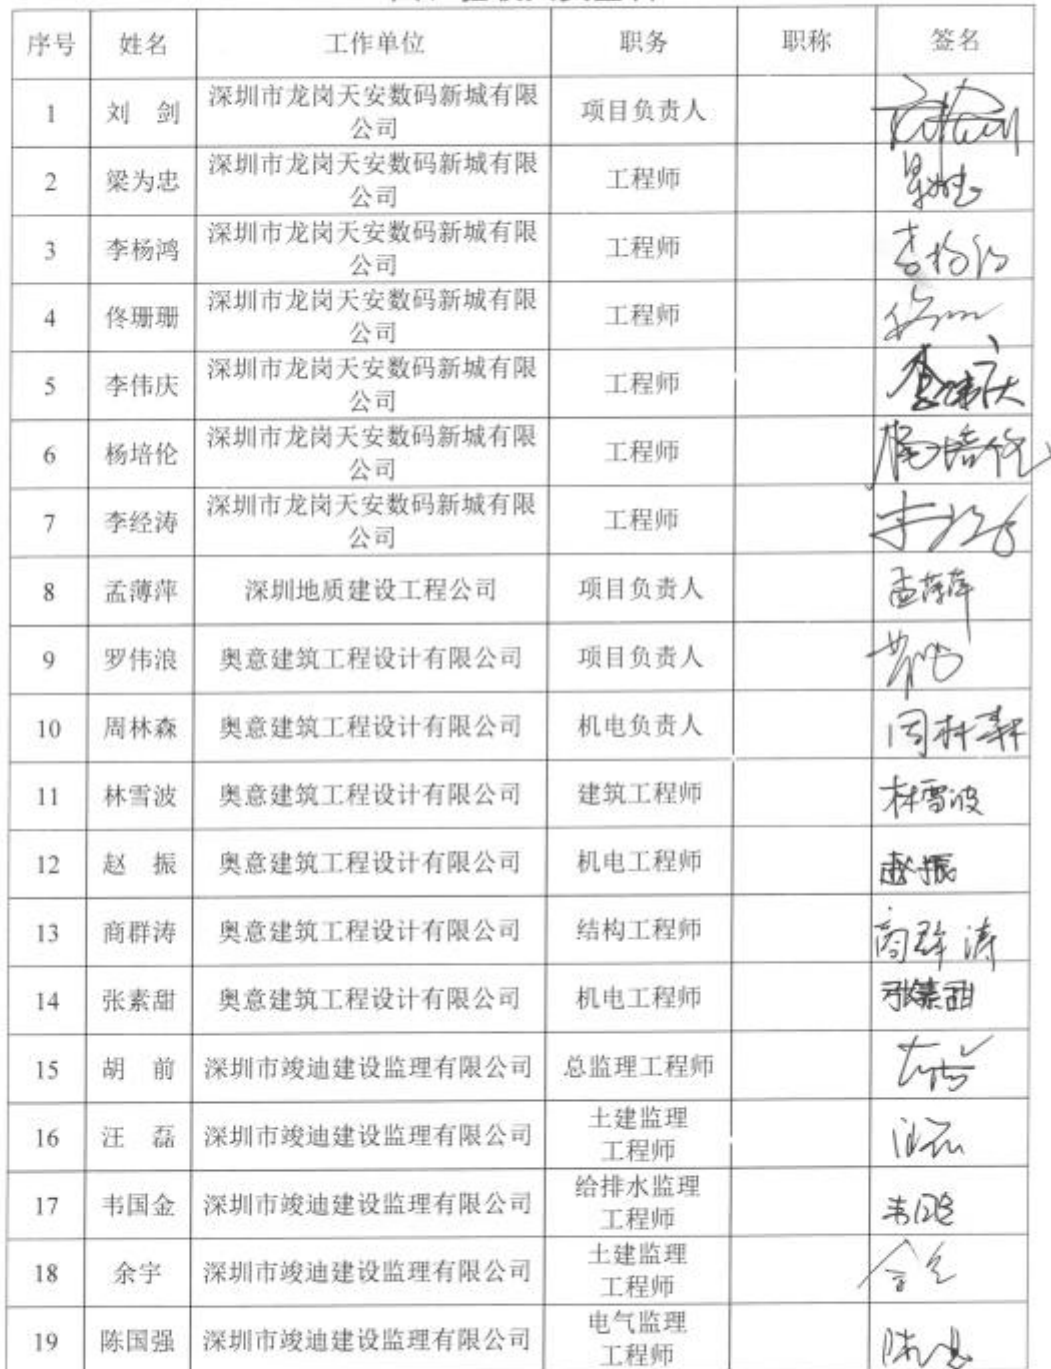 序号 姓名 工作单位 职务 职称 签名
1 刘 剑 深圳市龙岗天安数码新城有限 项目负责人
公司
2 梁为忠 深圳市龙岗天安数码新城有限 工程师
公司
3 李杨鸿 深圳市龙岗天安数码新城有限 工程师 李杨鸿
公司
4 佟珊珊 深圳市龙岗天安数码新城有限 工程师
公司
5 李伟庆 深圳市龙岗天安数码新城有限 工程师 李伟庆
公司
6 杨培伦 深圳市龙岗天安数码新城有限 工程师 杨培伦
公司
7 李经涛 深圳市龙岗天安数码新城有限 工程师
公司
8 孟薄萍 深圳地质建设工程公司 项目负责人 孟薄萍
9 罗伟浪 奥意建筑工程设计有限公司 项目负责人
10 周林森 奥意建筑工程设计有限公司 机电负责人 周林森
11 林雪波 奥意建筑工程设计有限公司 建筑工程师 林雪波
12 赵 振 奥意建筑工程设计有限公司 机电工程师 赵振
13 商群涛 奥意建筑工程设计有限公司 结构工程师 商群涛
14 张素甜 奥意建筑工程设计有限公司 机电工程师 张素甜
15 胡 前 深圳市竣迪建设监理有限公司 总监理工程师
16 汪 磊 深圳市竣迪建设监理有限公司 土建监理
工程师
17 韦国金 深圳市竣迪建设监理有限公司 给排水监理
工程师
18 余宇 深圳市竣迪建设监理有限公司 土建监理
工程师
19 陈国强 深圳市竣迪建设监理有限公司 电气监理
工程师